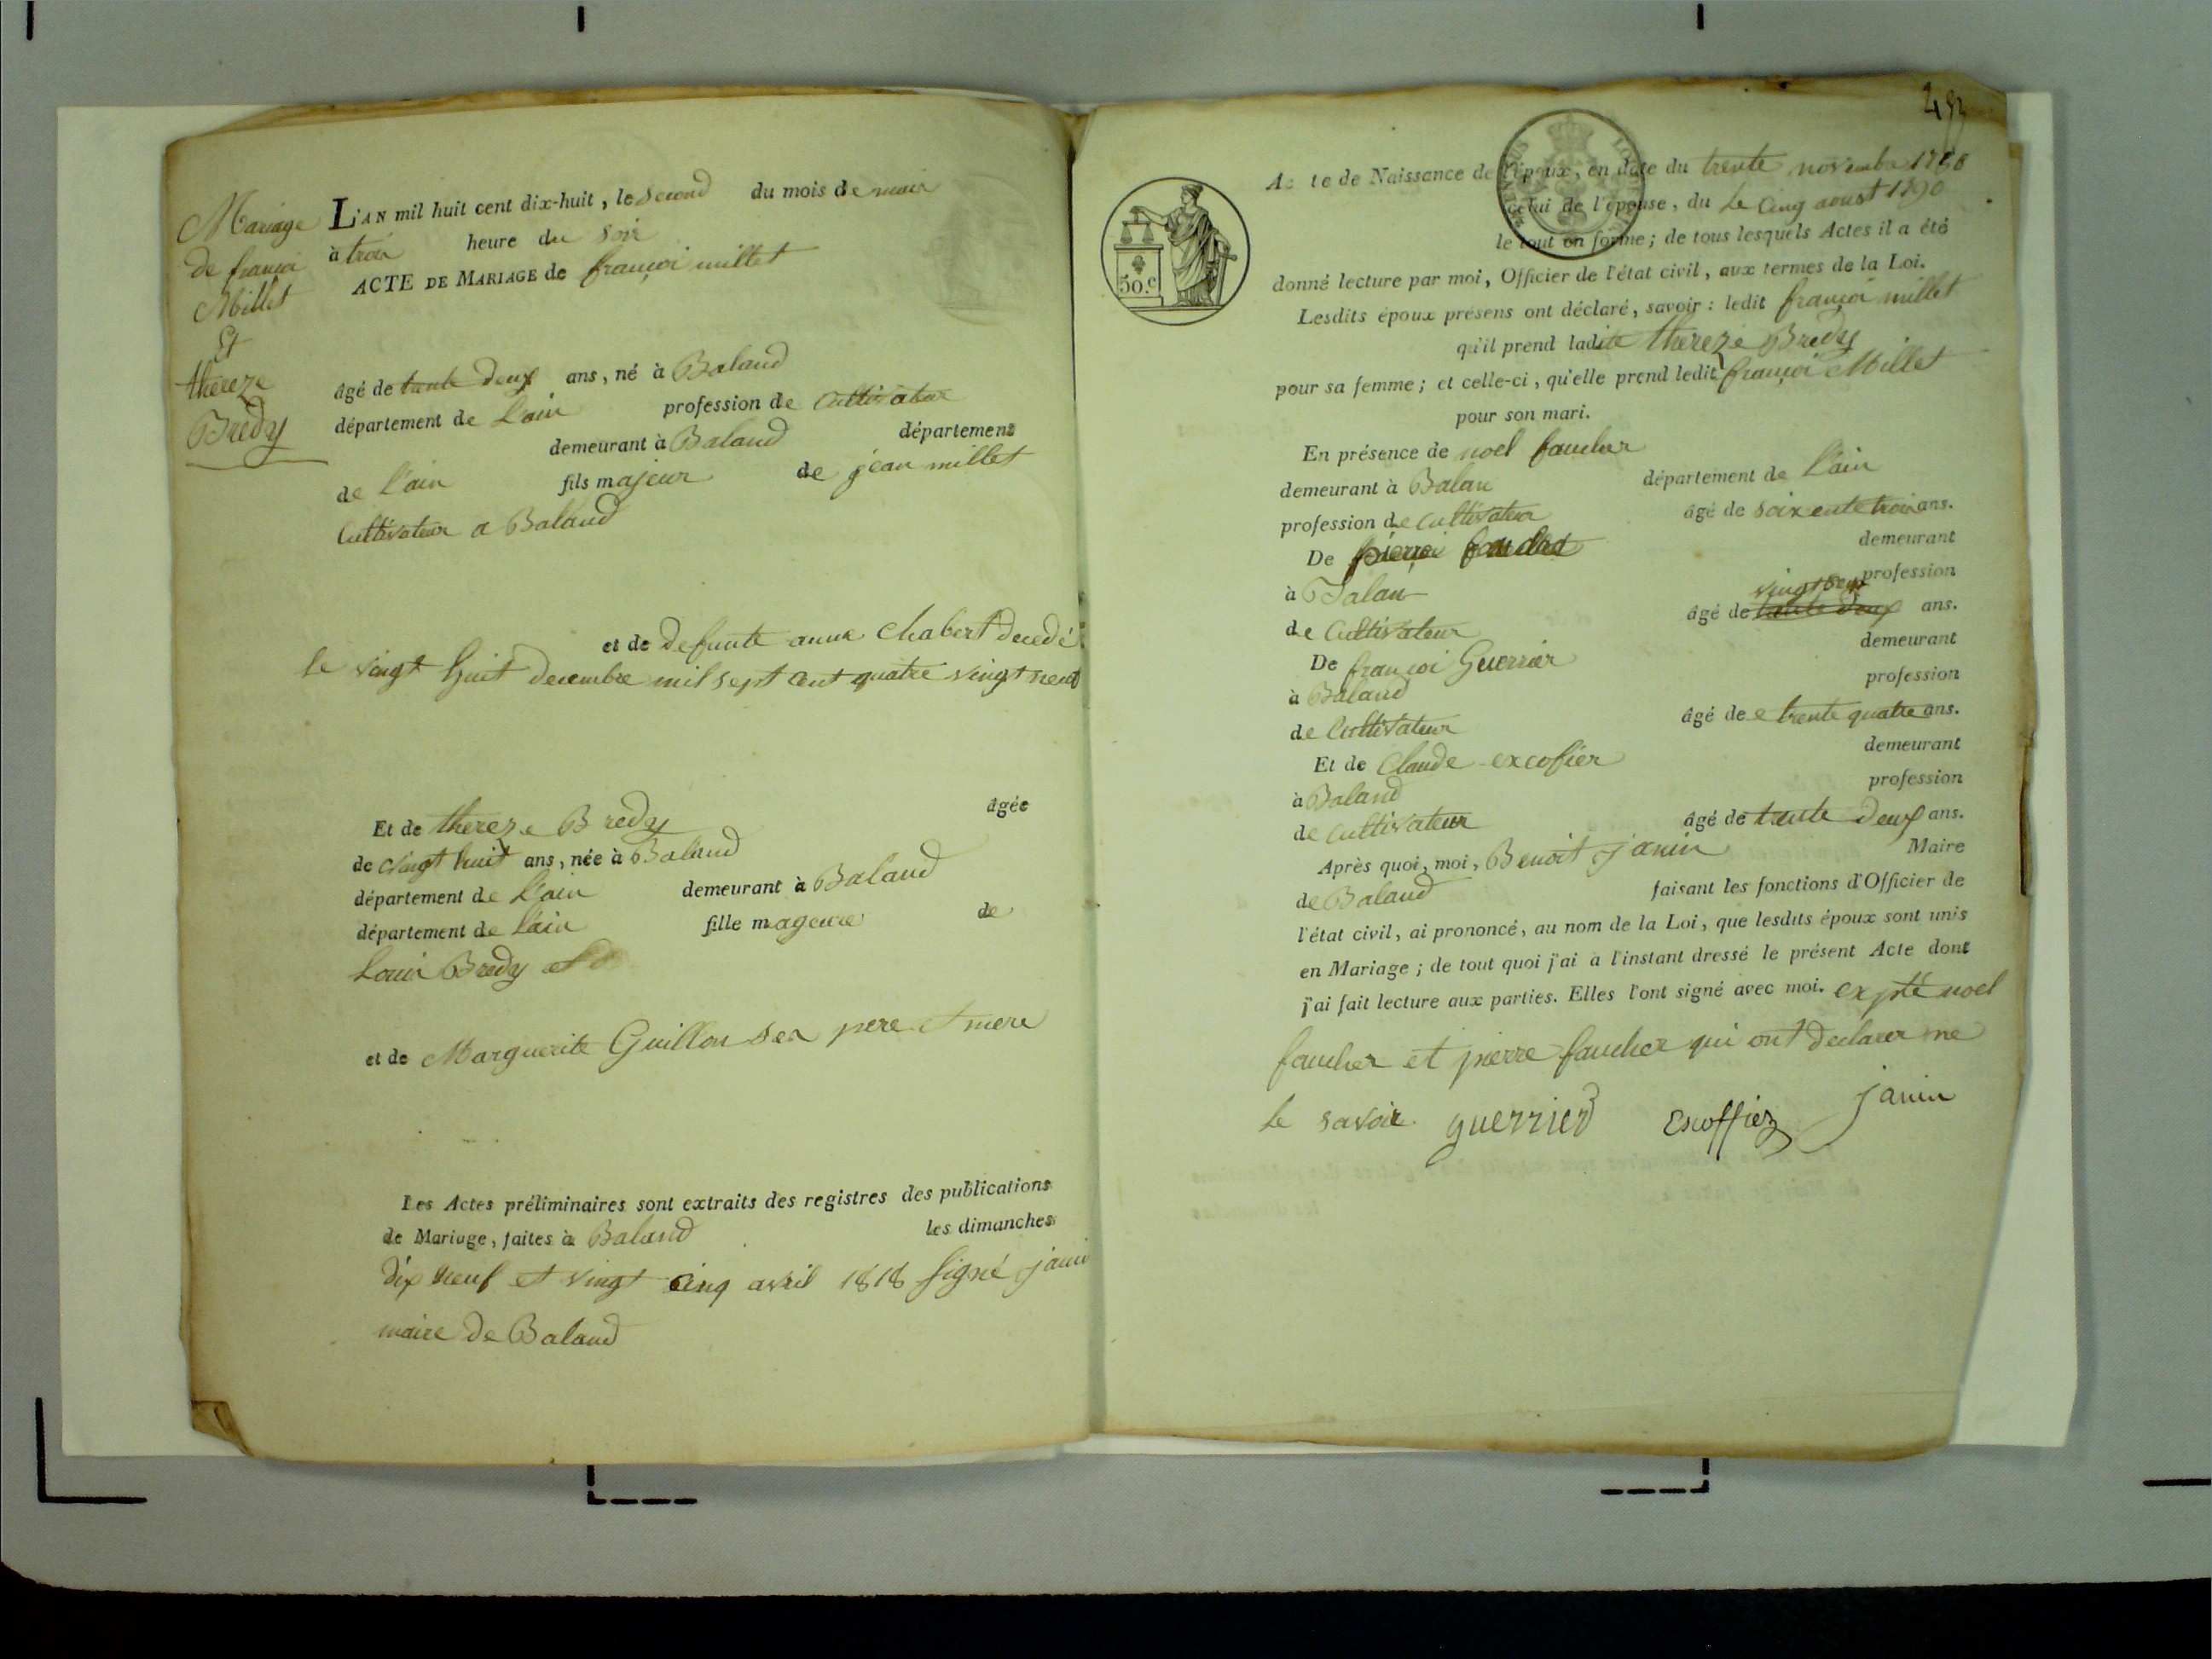 Mariage
de françoi
Millet
Et
thereze
Bredy
L'AN mil huit cent dix-huit, le second du mois de mai
à troi heure du soir
ACTE DE MARIAGE de françoi millet
âgé de trente deux ans, né à Baland
département de L'ain profession de Cultivateur
demeurant à Baland département
de l'ain fils majeur de jean millet
Cultivateur a Baland
et de defunte anne Chabert decedé
le vingt huit decembre mil sept cent quatre vingt neuf
Et de thereze Bredy âgée
de vingt huit ans, née à Baland
département de L'ain demeurant à Baland
département de l'ain fille mageure de
Louis Bredy et
et de Marguerite Guillon ses pere et mere
Les Actes préliminaires sont extraits des registres des publications
de Mariage, faites à Baland les dimanches
dix neuf et vingt cinq avril 1818 signé janin
maire de Baland
Acte de Naissance de l'époux, en date du trente novembre
celui de l'épouse, du Le Cinq aoust 1790
le tout en forme; de tous lesquels Actes il a été
donné lecture par moi, Officier de l'état civil, aux termes de la Loi.
50.c
Lesdits époux présens ont déclaré, savoir : ledit françoi millet
qu'il prend ladite thereze Bredy
pour sa femme ; et celle-ci, qu'elle prend ledit françoi Millet
pour son mari.
En présence de noel faucher
demeurant à Balan département de l'ain
profession de Cultivateur âgé de soixente troi ans.
De pierre demeurant
à Balan profession
vingt deux
de Cultivateur âgé de trente deux ans.
De françoi Guerrier demeurant
à Baland profession
de Cultivateur âgé de trente quatre ans.
Et de Claude excofier demeurant
à Baland profession
de Cultivateur âgé de trente deux ans.
Après quoi, moi, Benoit janin Maire
de Baland faisant les fonctions d'Officier de
l'état civil, ai prononcé, au nom de la Loi, que lesdits époux sont unis
en Mariage ; de tout quoi j'ai à l'instant dressé le présent Acte dont
j'ai fait lecture aux parties. Elles l'ont signé avec moi. expté noel
faucher et pierre faucher qui ont declarer ne
le savoir. guerrier Escoffier janin